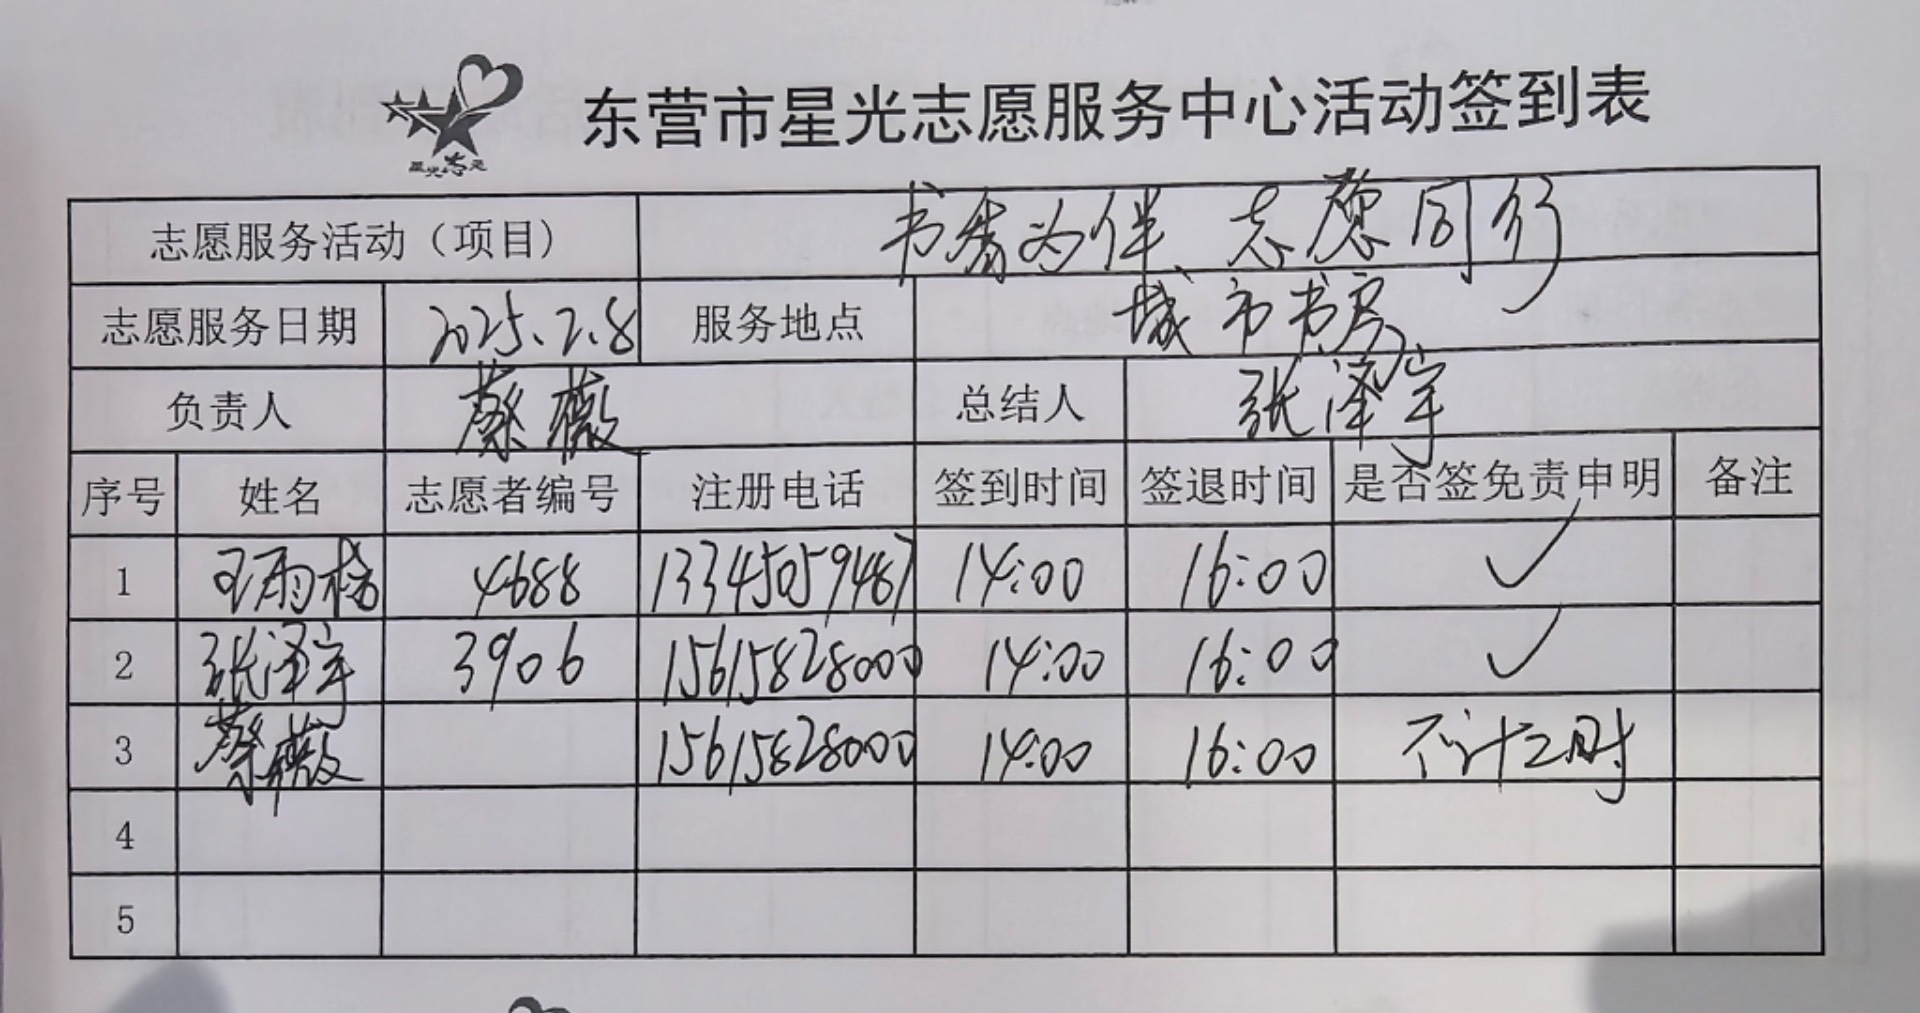 星光志愿
东营市星光志愿服务中心活动签到表
志愿服务活动（项目） 书香为伴、志愿同行
志愿服务日期 2025.2.8 服务地点 城市书房
负责人 蔡薇 总结人 张泽宇
序号 姓名 志愿者编号 注册电话 签到时间 签退时间 是否签免责申明 备注
1 王雨 4688 13345059487 14:00 16:00 ✓
2 张泽宇 3906 15615828000 14:00 16:00 ✓
3 蔡薇 15615828000 14:00 16:00 不计工时
4
5